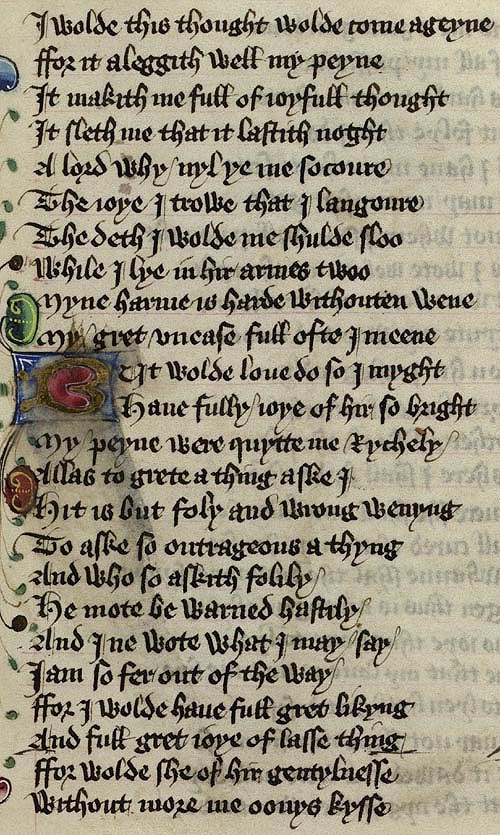 I wolde this thought wolde come ageyne
ffor it aleggith well my peyne
It makith me full of ioyfull thought
It sleth me that it lastith noght
A lord why / nyl ye me socoure
The ioye I trowe that I langoure
The deth I wolde me shulde sloo
While I lye in hir armes twoo
Myne harme is harde withouten wene
My / gret vnease full ofte I meene
But wolde loue do so I myght
Haue fully / ioye of hir so bright
My / peyne were quytte me Rychely /
Allas to grete a thing aske I
Hit is but foly and wrong wenyng
To aske so outrageous a thyng
And who so askith folily /
He mote be warned hastily /
And I ne wote what I may / say /
I am so fer out of the way /
ffor I wolde haue full gret likyng
And full gret ioye of lasse thing
ffor wolde she of hir gentylnesse
Without more me oonys kysse